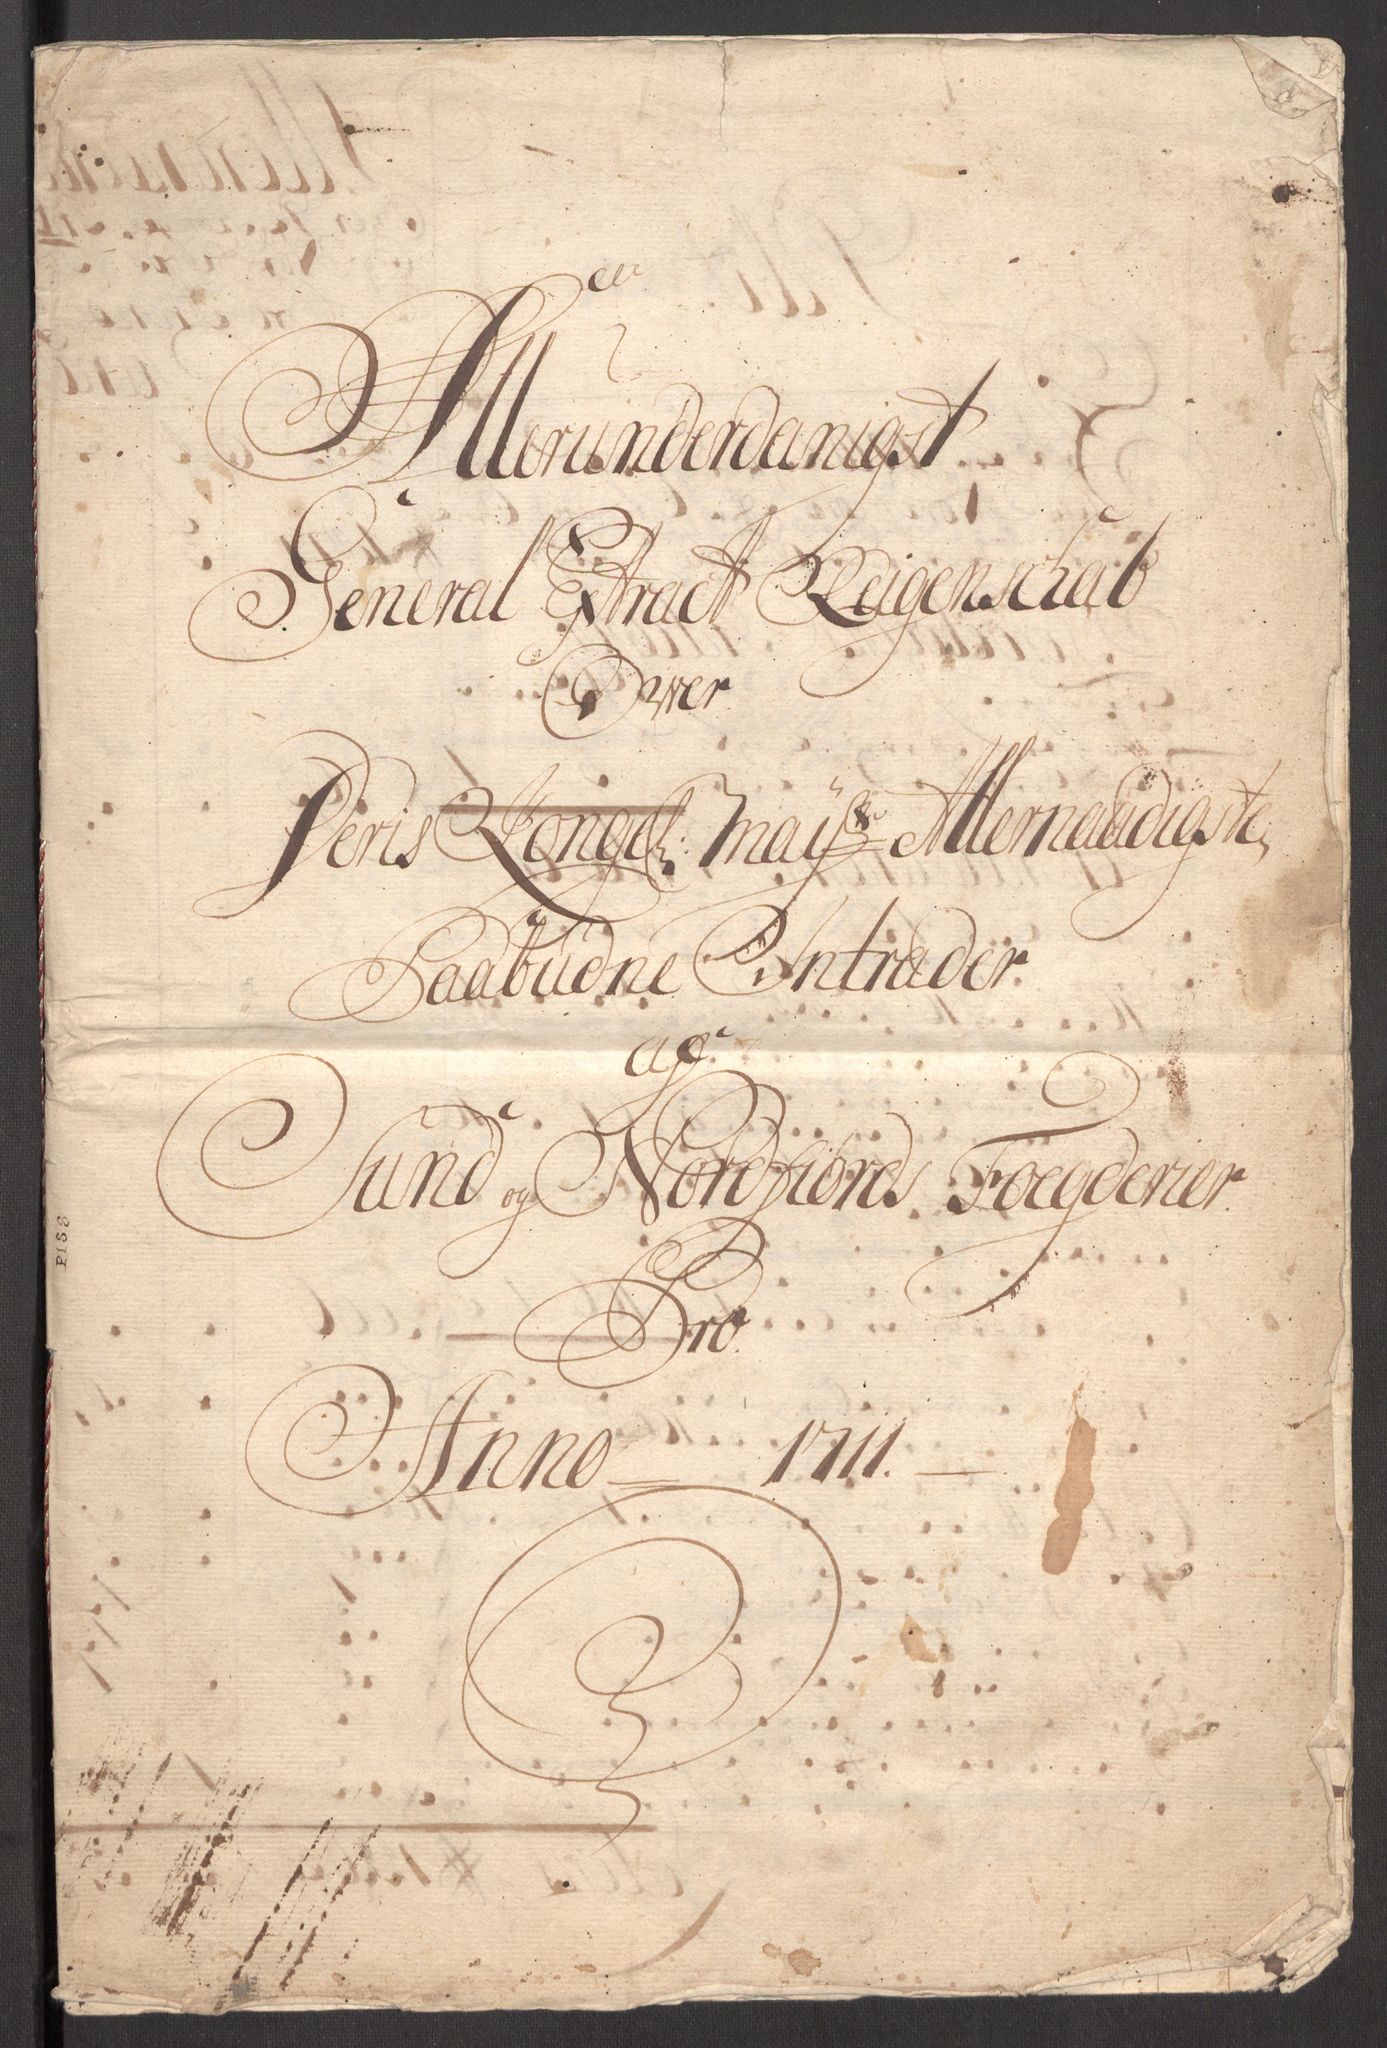 Allerunderdanigst
General Extract Reigenschab
Over
Deris Kongel: Mayst: Allernaadigste
Paabudne Intrader
af
Sund og Nordfiords Foegderier
Pro
Anno 1711.
P158